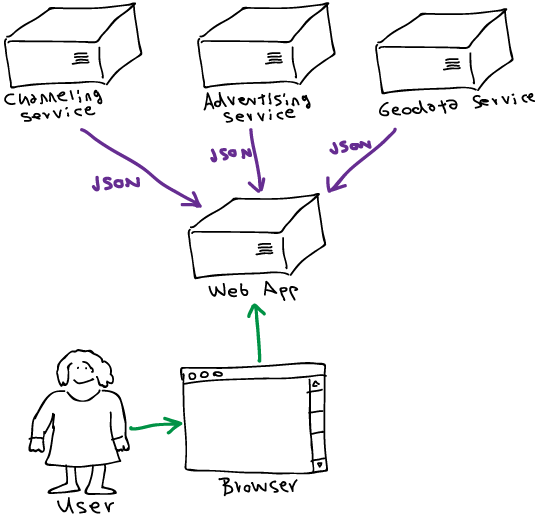 Channeling
Service
Advertising
Service
Geodata Service
JSON
JSON
JSON
Web App
User
Browser